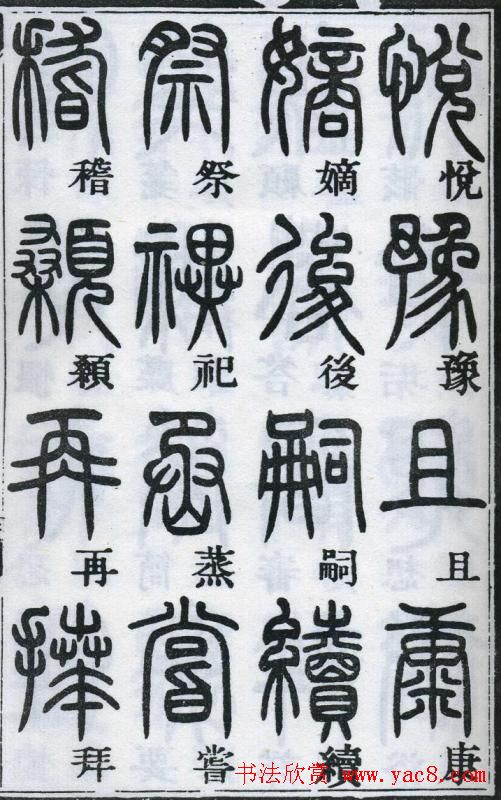 悅豫且康
嫡後嗣續
祭祀蒸嘗
稽顙再拜
书法欣赏 www.yac8.com